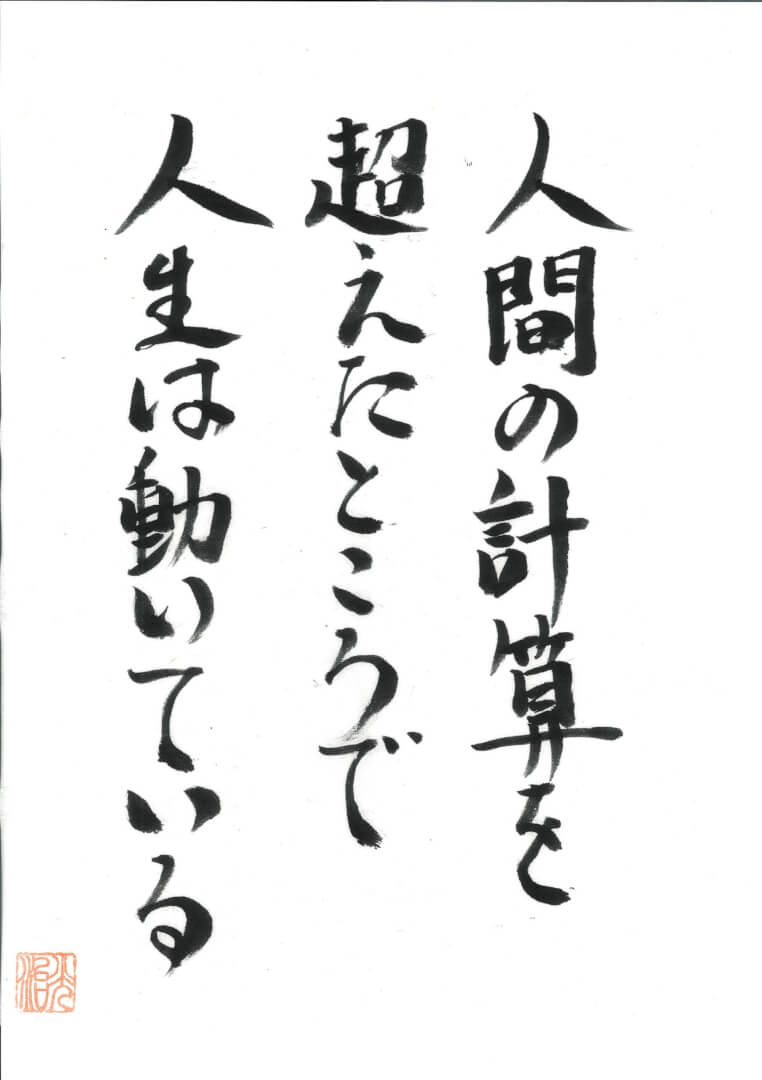 人間の計算を
超えたところで
人生は動いている